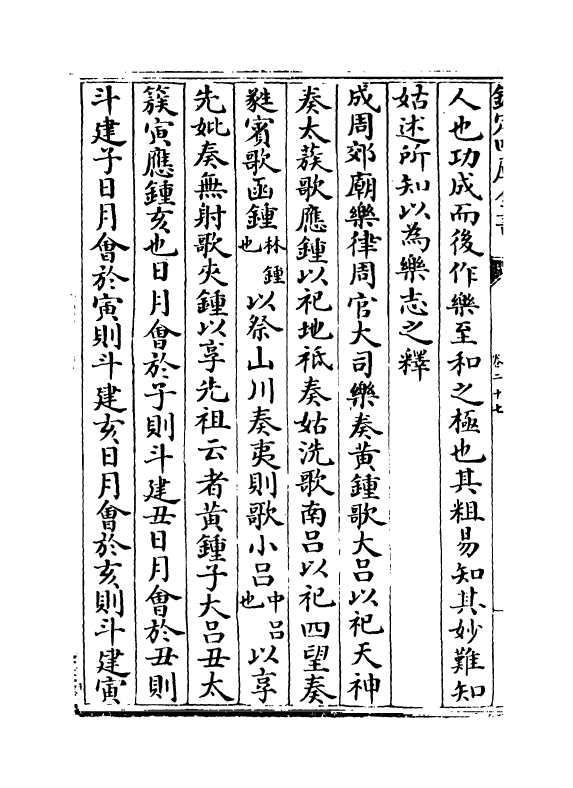 欽定四庫全書
卷二十七
人也功成而後作樂至和之極也其粗易知其妙難知
姑述所知以為樂志之釋
成周郊廟樂律周官大司樂奏黄鍾歌大呂以祀天神
奏太蔟歌應鍾以祀地祇奏姑洗歌南呂以祀四望奏
蕤賓歌函鍾林鍾也以祭山川奏夷則歌小呂中呂也以享
先妣奏無射歌夾鍾以享先祖云者黄鍾子大呂丑太
簇寅應鍾亥也日月會於子則斗建丑日月會於丑則
斗建子日月會於寅則斗建亥日月會於亥則斗建寅